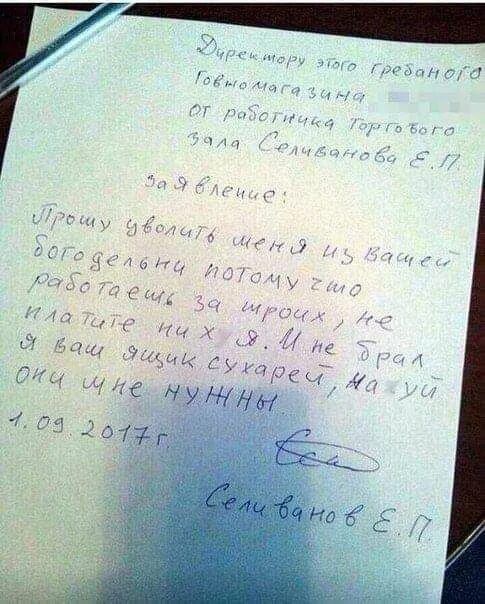 Директору этого гребаного
Говномагазина
от работника Торгового
зала Селиванова Е.П.
заЯвление:
Прошу уволить меня из вашей
богодельни потому что
работаешь за троих, не
платите ни х я. И не брал
я ваш ящик сухарей, на хуй
они мне нужны
1.09.2017г
Селиванов Е.П.